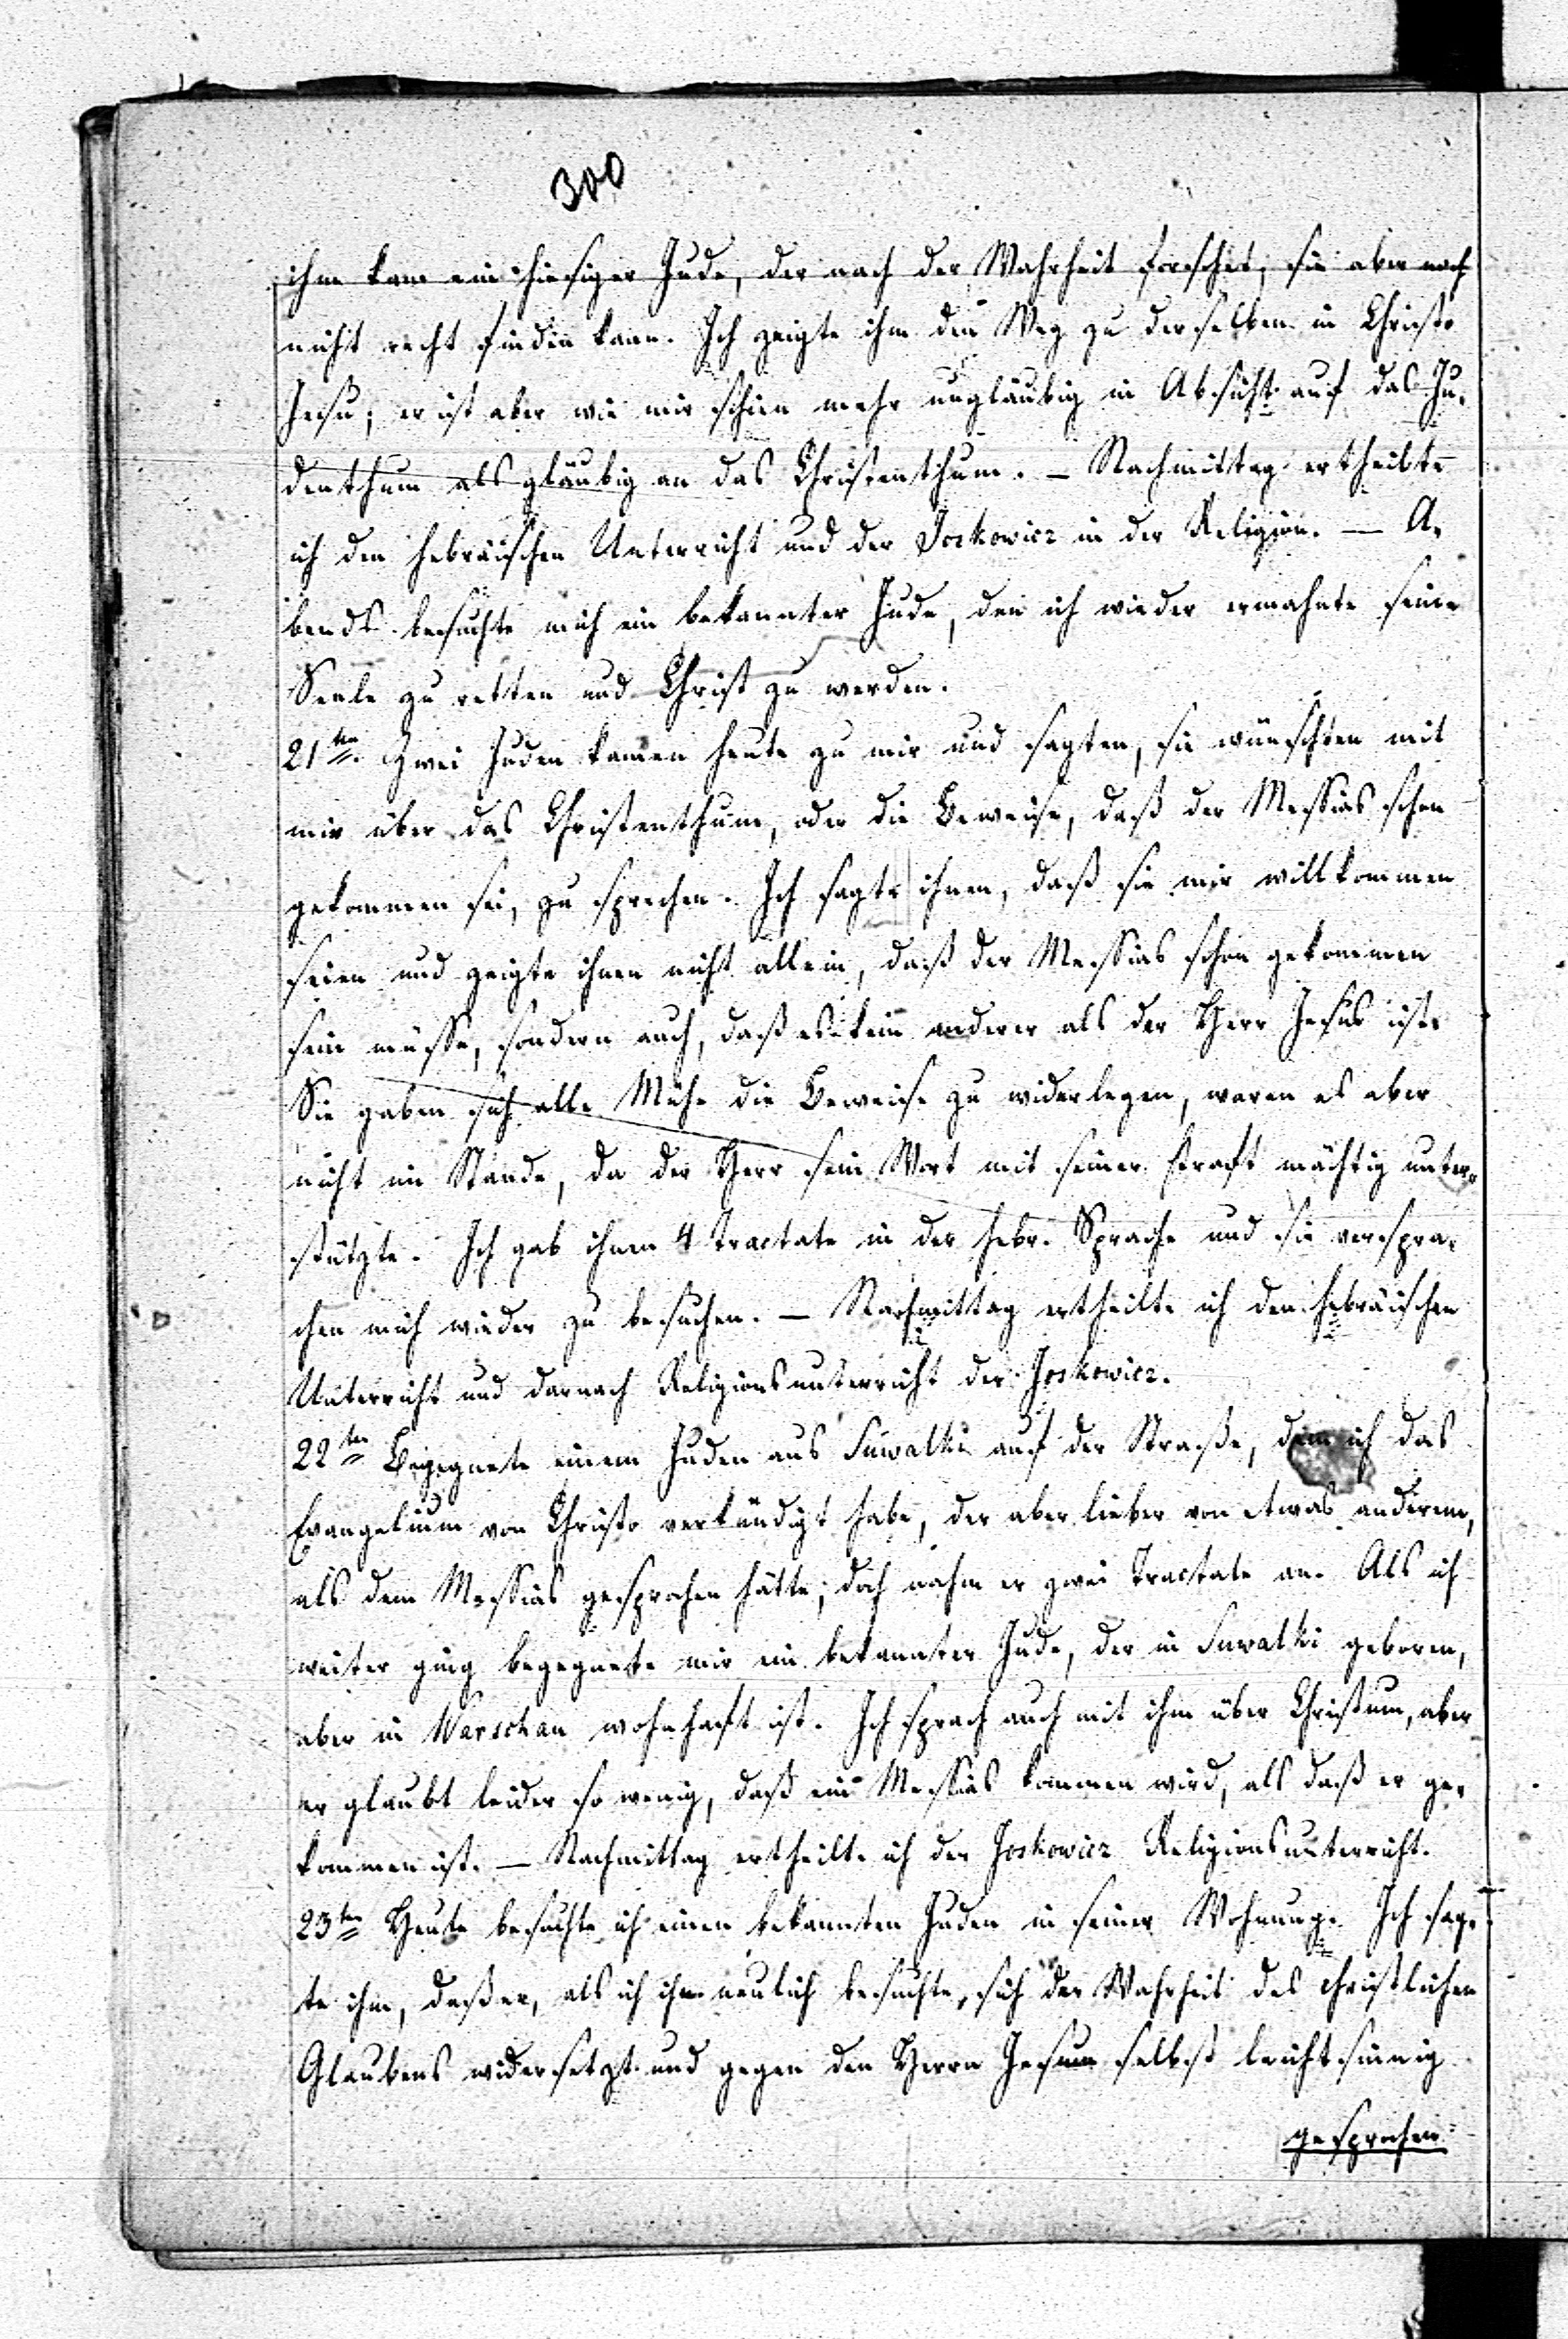 300
ihm kam ein hiesiger Jude, der nach der Wahrheit forschet, sie aber noch
nicht recht finden kann. Ich zeigte ihm den Weg zu derselben in Christo
Jesu; er ist aber wie mir schien mehr ungläubig in Absicht auf das Ju-
denthum als gläubig an das Christenthum. – Nachmittag ertheilte
ich den hebräischen Unterricht und der Joskowicz in der Religion. — A-
bends besuchte mich ein bekannter Jude, den ich wieder ermahnte seine
Seele zu retten und Christ zu werden.
21ten Zwei Juden kamen heute zu mir und sagten, sie wünschten mit
mir über das Christenthum, oder die Beweise, daß der Messias schon
gekommen sei, zu sprechen. Ich sagte ihnen, daß sie mir willkommen
seien und zeigte ihnen nicht allein, daß der Messias schon gekommen
sein müsse, sondern auch, daß es kein anderer als der Herr Jesus ist.
Sie gaben sich alle Mühe die Beweise zu widerlegen, waren es aber
nicht im Stande, da der Herr sein Wort mit seiner Kraft mächtig unter-
stützte. Ich gab ihnen 4 Tractate in der hebr. Sprache und sie verspra-
chen mich wieder zu besuchen. – Nachmittag ertheilte ich den hebräischen
Unterricht und darnach Religionsunterricht der Joskowicz.
22ten Begegnete einem Juden aus Suwalki auf der Straße, dem ich das
Evangelium von Christo verkündigt habe, der aber lieber von etwas anderem,
als dem Messias gesprochen hätte; doch nahm er zwei Tractate an. Als ich
weiter ging begegnete mir ein bekannter Jude, der in Suwalki geboren,
aber in Warschau wohnhaft ist. Ich sprach auch mit ihm über Christum, aber
er glaubt leider so wenig, daß ein Messias kommen wird, als daß er ge-
kommen ist. – Nachmittag ertheilte ich der Joskowicz Religionsunterricht.
23ten Heute besuchte ich einen bekannten Juden in seiner Wohnung. Ich sag-
te ihm, daß er, als ich ihn neulich besuchte, sich der Wahrheit des christlichen
Glaubens widersetzt und gegen den Herrn Jesum selbst leichtsinnig
gesprochen